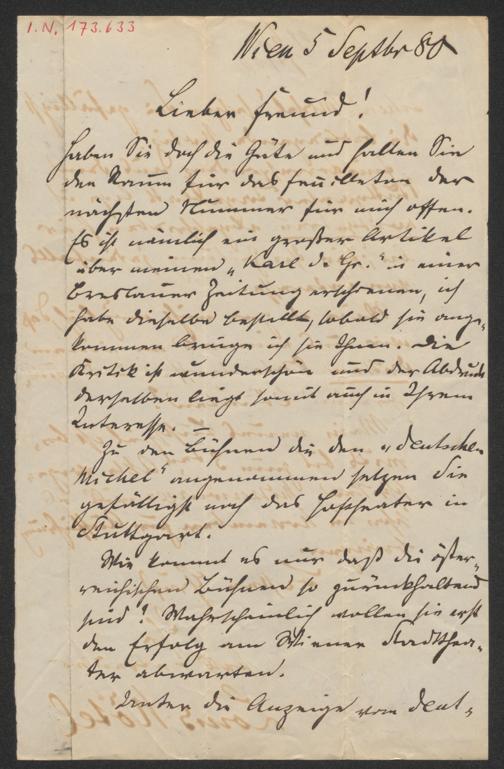 I.N. 173.633
Wien 5 Septbr 80
Lieber Freund!
Haben Sie doch die Güte und halten Sie
den Raum für das Feuilleton der
nächsten Nummer für mich offen.
Es ist nämlich ein großer Artikel
über meinen „Karl d. Gr." in einer
Breslauer Zeitung erschienen, ich
habe dieselbe bestellt, sobald sie ange-
kommen bringe ich sie Ihnen. Die
Kritik ist wunderschön und der Abdruck
derselben liegt somit auch in Ihrem
Interesse. –
Zu den Bühnen die den „deutschen
Michel" angenommen setzen Sie
gefälligst noch das Hoftheater in
Stuttgart.
Wie kommt es nur daß die öster-
reichischen Bühnen so zurückhaltend
sind? Wahrscheinlich wollen sie erst
den Erfolg am Wiener Stadtthea-
ter abwarten.
Unter die Anzeige vom deut-